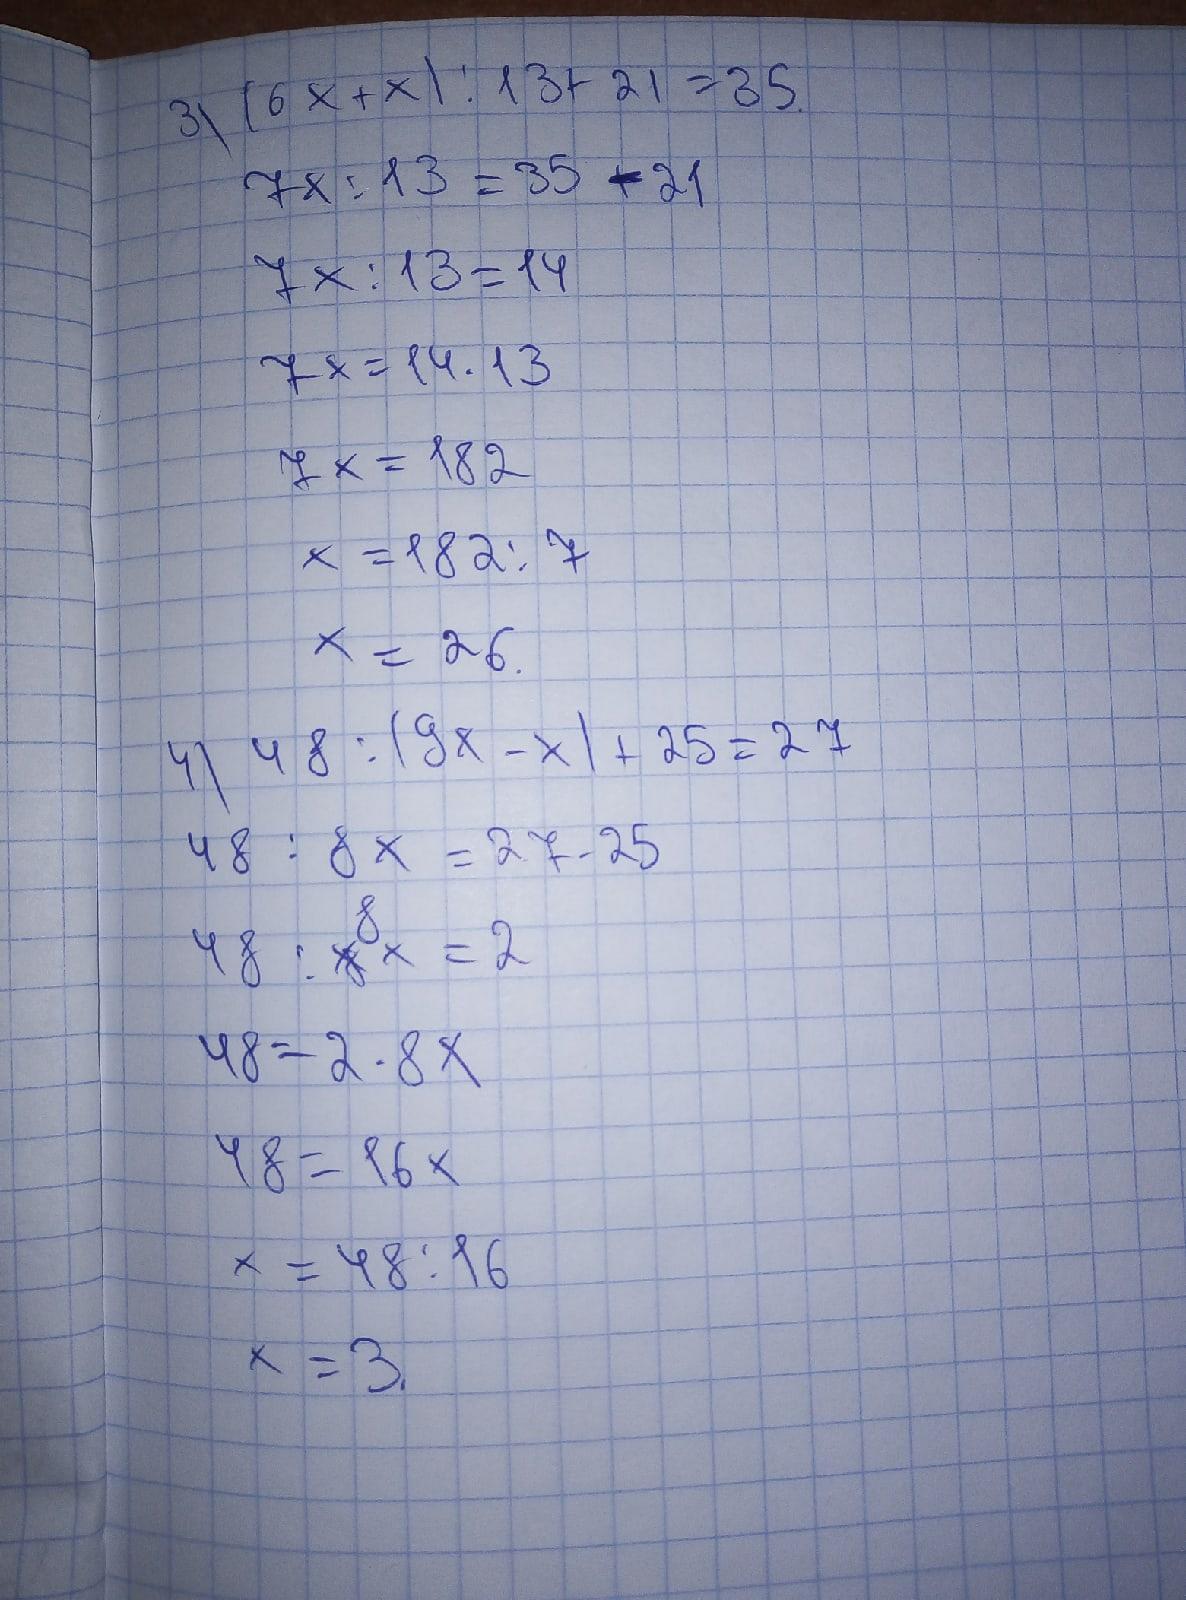 3) (6x+x):13+21=35.
7x:13=35-21
7x:13=14
7x=14·13
7x=182
x=182:7
x=26.
4) 48:(9x-x)+25=27
48:8x=27-25
48:8x=2
48=2·8x
48=16x
x=48:16
x=3.